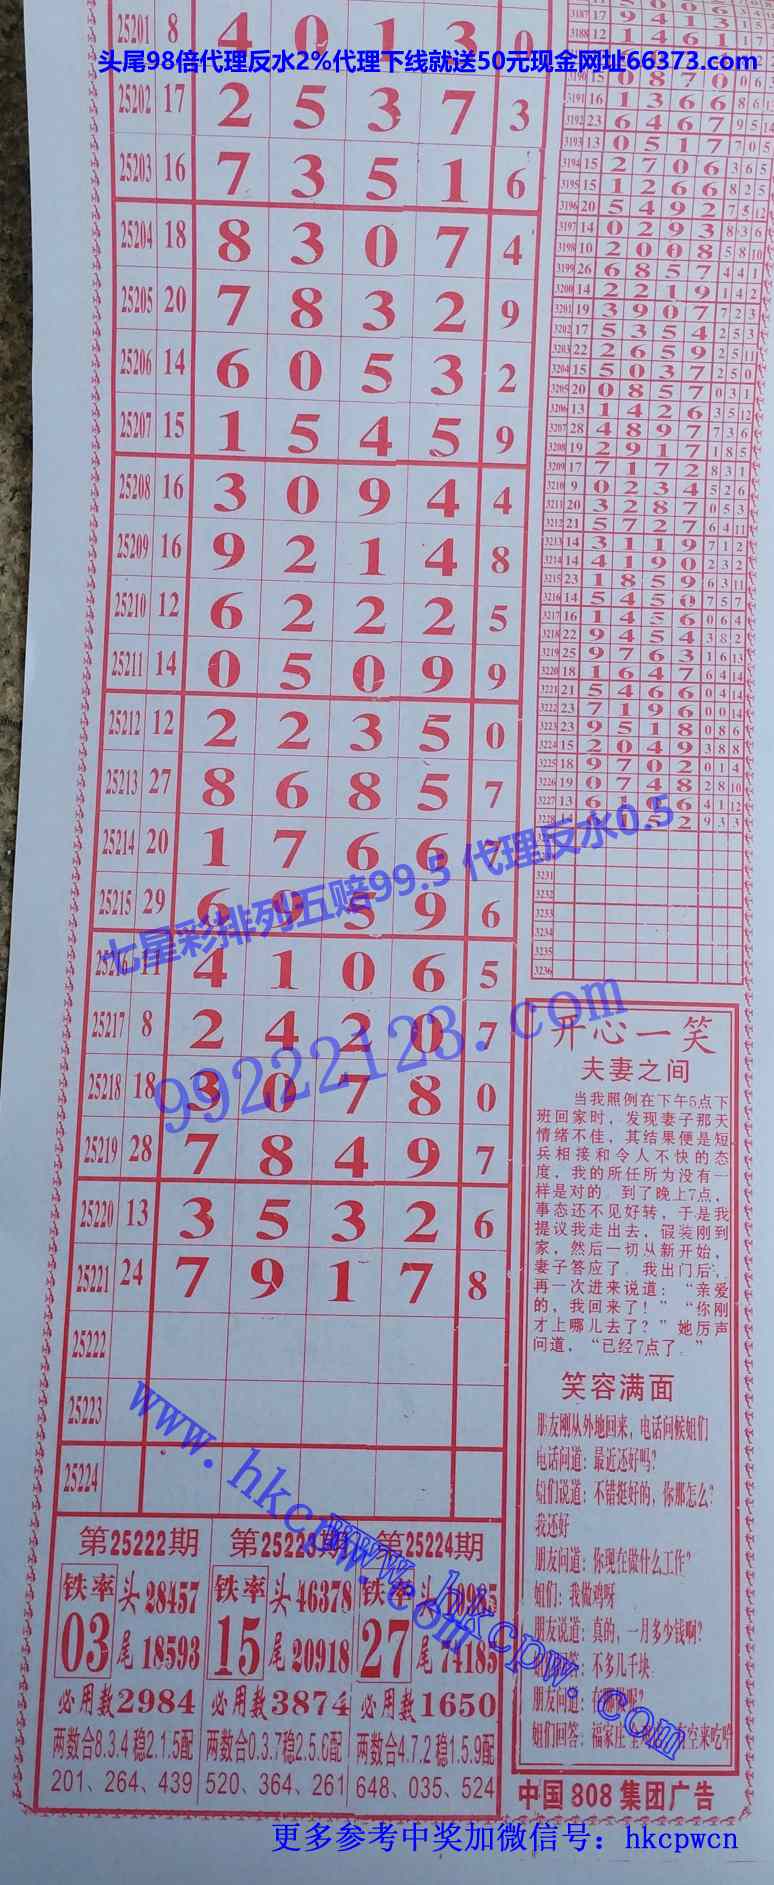 25201 8 4 0 1 3 0
头尾98倍代理反水2%代理下线就送50元现金网址66373.com
25202 17 2 5 3 7 3
25203 16 7 3 5 1 6
25204 18 8 3 0 7 4
25205 20 7 8 3 2 9
25206 14 6 0 5 3 2
25207 15 1 5 4 5 9
25208 16 3 0 9 4 4
25209 16 9 2 1 4 8
25210 12 6 2 2 2 5
25211 14 0 5 0 9 9
25212 12 2 2 3 5 0
25213 27 8 6 8 5 7
25214 20 1 7 6 6 7
25215 29 6 9 5 9 6
七星彩排列五赔99.5 代理反水0.5
25216 11 4 1 0 6 5
25217 8 2 4 2 0 7
99222123.com
25218 18 3 0 7 8 0
25219 28 7 8 4 9 7
25220 13 3 5 3 2 6
25221 24 7 9 1 7 8
25222
25223
25224
www.hkcpw.com
第25222期 第25223期 第25224期
铁率 头28457 铁率 头46378 铁率
03 尾18593 15 尾20918 27 尾74185
必用数2984 必用数3874 必用数1650
两数合8.3.4稳2.1.5配 两数合0.3.7稳2.5.6配 两数合4.7.2稳1.5.9配
201、264、439 520、364、261 648、035、524
www.hkcpw.com
3187 17 9 4 1 3 1
3188 12 1 4 6 1 1
3190 15 0 8 7 0 0 6
3191 16 1 3 6 6 8 6
3192 23 6 4 6 7 9 5 14
3193 13 0 5 1 7 7 0 5
3194 15 2 7 0 6 3 6 5
3195 15 1 2 6 6 8 2 5
3196 20 5 4 9 2 7 5 12
3197 14 0 2 9 3 8 3 6
3198 10 2 0 0 8 5 8 10
3199 26 6 8 5 7 4 4 1
3200 14 2 2 1 9 1 4 2
3201 19 3 9 0 7 7 2 3
3202 17 5 3 5 4 2 5 3
3203 22 2 6 5 9 2 5 11
3204 15 5 0 3 7 2 5 0
3205 20 0 8 5 7 0 3 1
3206 13 1 4 2 6 3 5 12
3207 28 4 8 9 7 7 3 6
3208 19 2 9 1 7 1 8 5
3209 17 7 1 7 2 8 3 1
3210 9 0 2 3 4 5 2 6
3211 20 3 2 8 7 0 5 3
3212 21 5 7 2 7 6 4 11
3213 14 3 1 1 9 7 1 2
3214 14 4 1 9 0 2 3 2
3215 23 1 8 5 9 6 3 11
3216 14 5 4 5 0 7 5 7
3217 16 1 4 5 6 0 6 4
3218 22 9 4 5 4 3 8 2
3219 25 9 7 6 3 1 6 13
3220 18 1 6 4 7 6 4 14
3221 21 5 4 6 6 0 4 14
3222 23 7 1 9 6 0 0 14
3223 23 9 5 1 8 0 8 6
3224 15 2 0 4 9 3 8 8
3225 18 9 7 0 2 0 1 4
3226 19 0 7 4 8 2 8 10
3227 13 6 1 6 4 1 12
3228 1 5 2 9 3 3
3231
3232
3233
3234
3235
3236
开心一笑
夫妻之间
当我照例在下午5点下
班回家时，发现妻子那天
情绪不佳，其结果便是短
兵相接和令人不快的态
度，我的所任所为没有一
样是对的。到了晚上7点，
事态还不见好转，于是我
提议我走出去，假装刚到
家，然后一切从新开始，
妻子答应了。我出门后，
再一次进来说道：“亲爱
的，我回来了！”“你刚
才上哪儿去了？”她厉声
问道，“已经7点了。”
笑容满面
朋友刚从外地回来，电话问候姐们
电话问道：最近还好吗?
姐们说道：不错挺好的，你那怎么?
我还好
朋友问道：你现在做什么工作?
姐们：我做鸡呀
朋友说道：真的，一月多少钱啊?
不多几千块
朋友问道：
姐们回答：福家庄 有空来吃哈
中国808集团广告
更多参考中奖加微信号：hkcpwcn